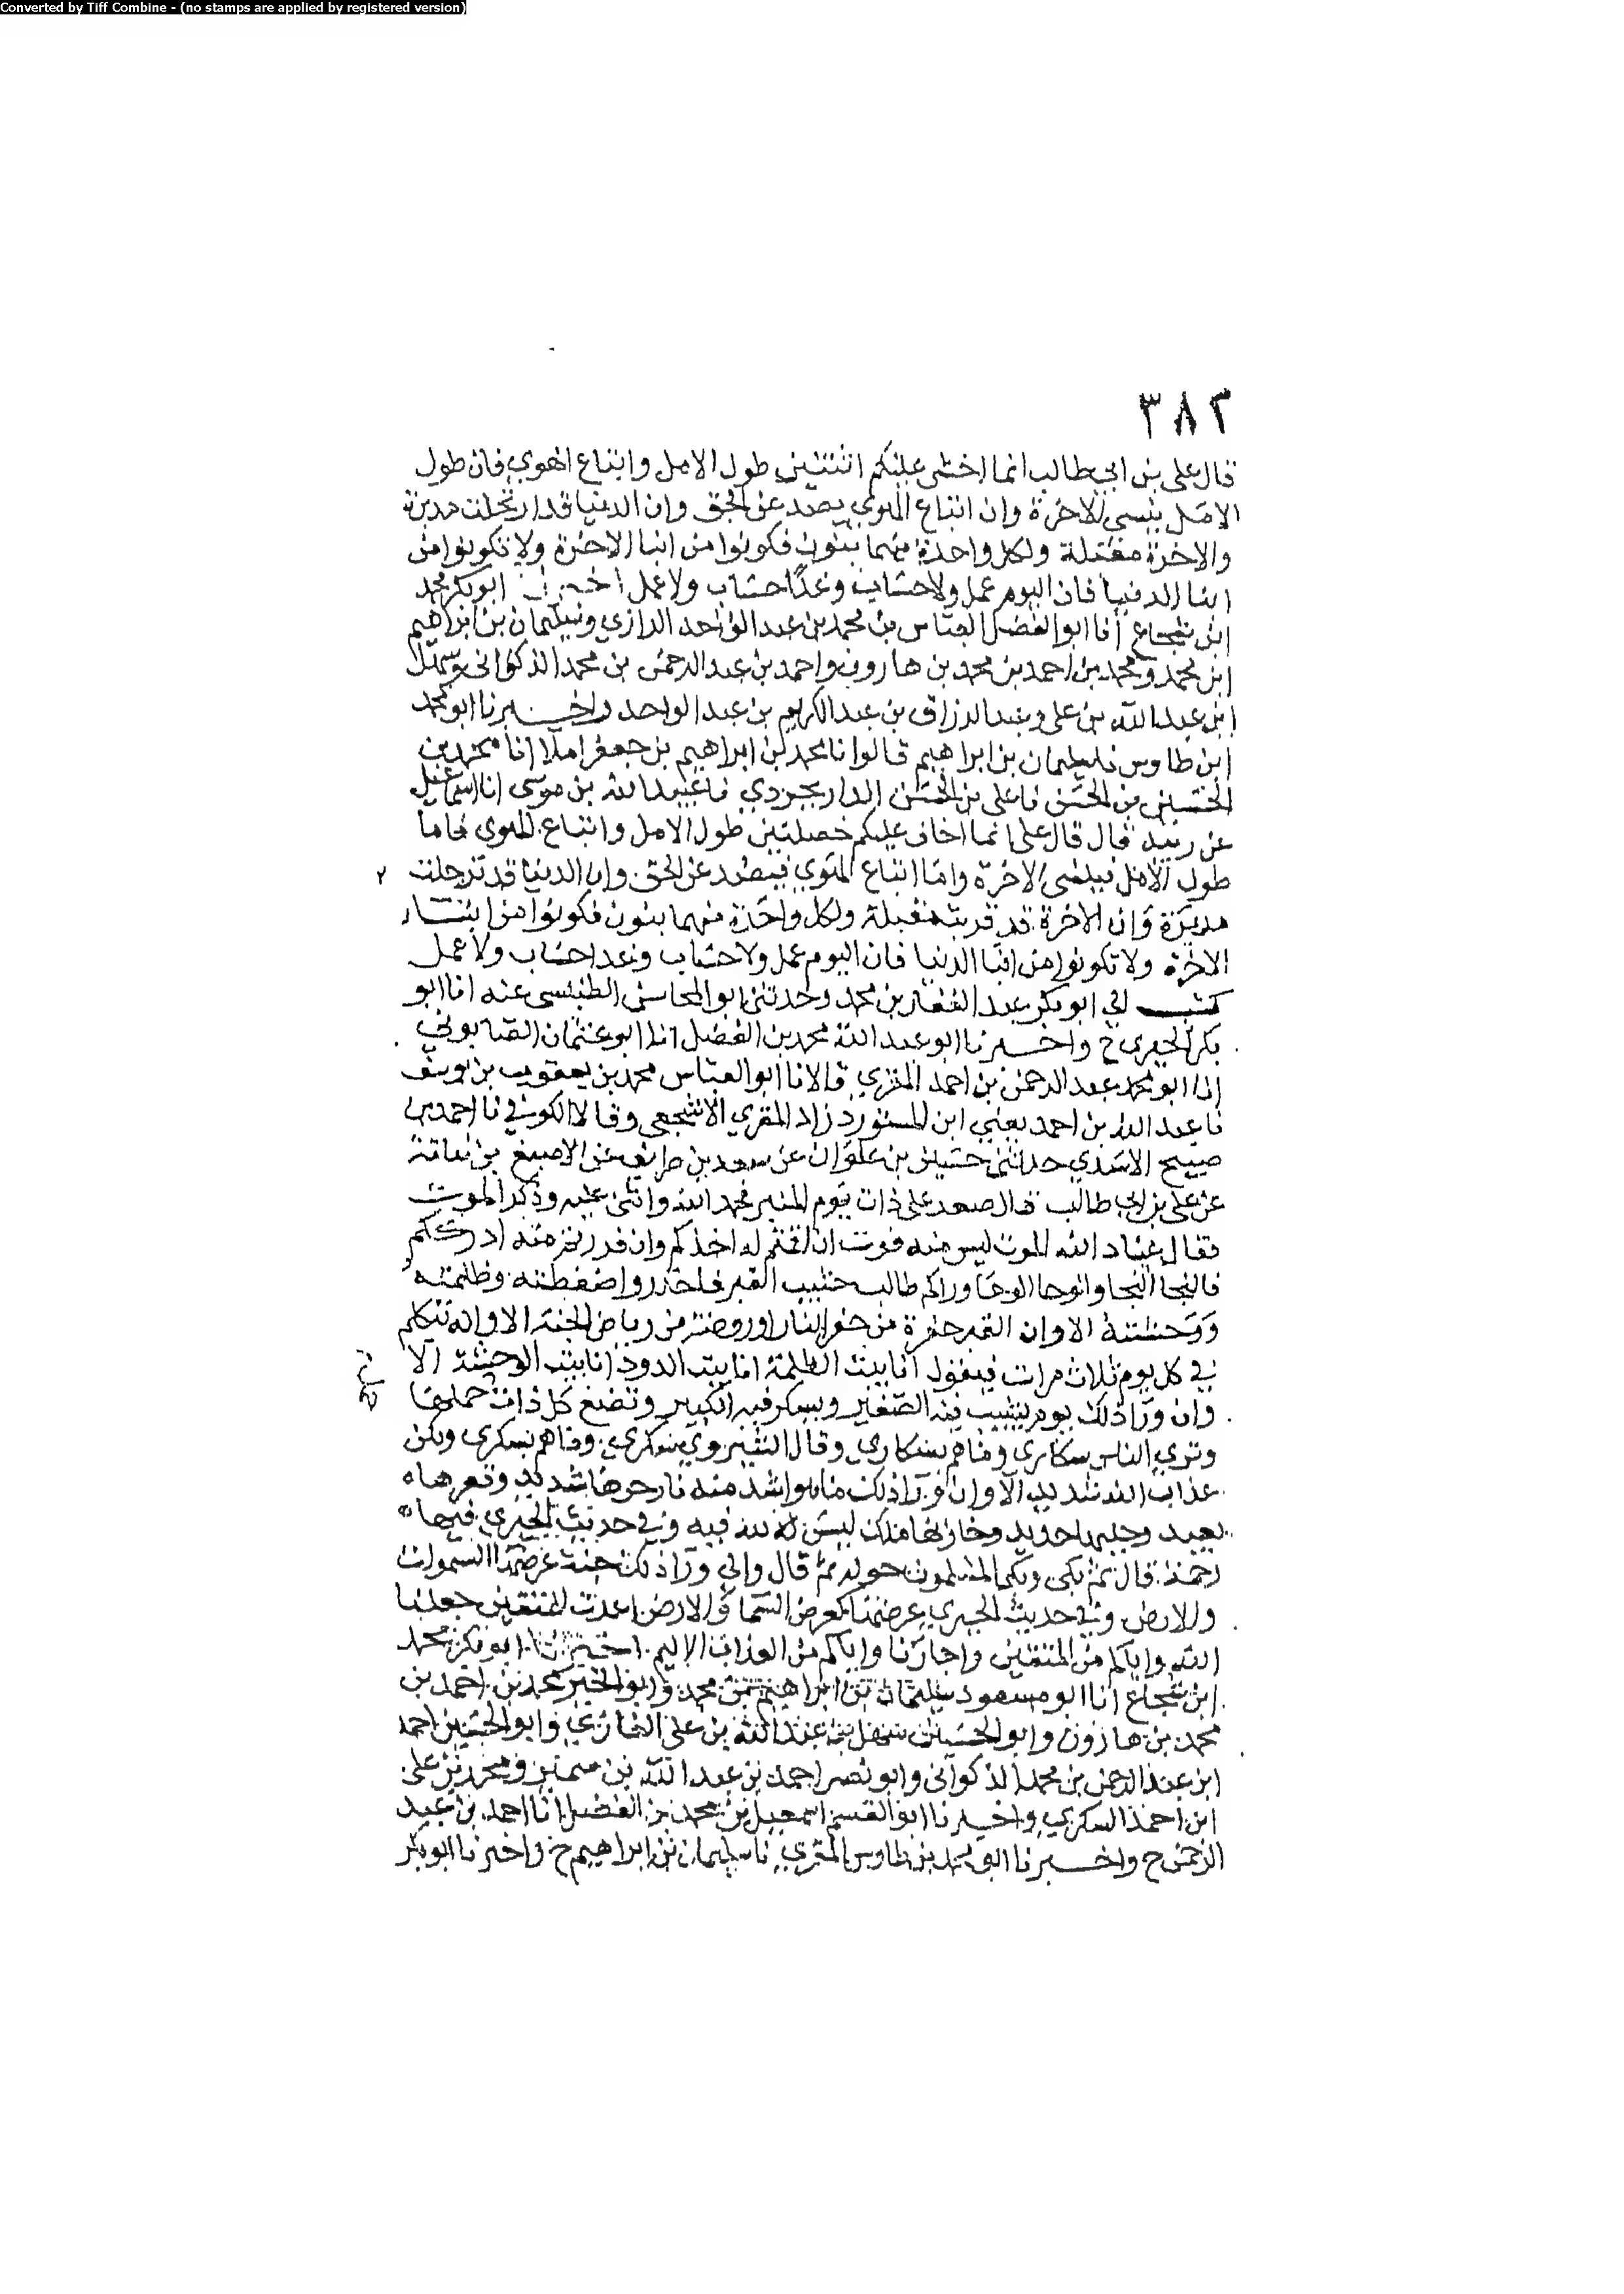 Converted by Tiff Combine - (no stamps are applied by registered version)
٣٨٢
قال علي بن ابي طالب انما اخشى عليكم اثنتين طول الامل واتباع الهوي فان طول
الامل ينسي الاخرة وان اتباع الهوي يصد عن الحق وان الدنيا قد ارتحلت مدبرة
والاخرة مقبلة ولكل واحدة منهما بنون فكونوا من ابنا الاخرة ولا تكونوا من
ابنا الدنيا فان اليوم عمل ولا حساب وغدا حساب ولا عمل اخبرنا ابو بكر محمد
ابن شجاع انا ابو الفضل العباس بن محمد بن عبد الواحد الرازي وسليمان بن ابراهيم
ابن محمد ومحمد بن احمد بن محمد بن هارون واحمد بن عبد الرحمن بن محمد الذكواني وسهل
ابن عبد الله بن علي وعبد الرزاق بن عبد الكريم بن عبد الواحد واخبرنا ابو محمد
ابن طاوس نا سليمان بن ابراهيم قالوا نا محمد بن ابراهيم بن جعفر املا انا محمد بن
الحسين بن الحسن نا علي بن الحسن الدارابجردي نا عبيد الله بن موسى انا اسماعيل
عن زبيد قال قال علي انما اخاف عليكم خصلتين طول الامل واتباع الهوى فاما
طول الامل فينسي الاخرة واما اتباع الهوي فيصد عن الحق وان الدنيا قد ترحلت
مدبرة وان الاخرة قد قربت مقبلة ولكل واحدة منهما بنون فكونوا من ابناء
الاخرة ولا تكونوا من ابنا الدنيا فان اليوم عمل ولا حساب وغدا حساب ولا عمل
كتب الي ابو بكر عبد الغفار بن محمد وحدثني ابو المحاسن الطبسي عنه انا ابو
بكر الحيري ح واخبرنا ابو عبد الله محمد بن الفضل انا ابو عثمان الصابوني
انا ابو محمد عبد الرحمن بن احمد المقري قالا نا ابو العباس محمد بن يعقوب بن يوسف
نا عبد الله بن احمد يعني ابن المستورد زاد المقري الاشجعي وقالا الكوفي نا احمد بن
صبيح الاسدي حدثني حسين بن علوان عن سعد بن طريف عن الاصبغ بن نباتة
عن علي بن ابي طالب قال صعد علي ذات يوم المنبر فحمد الله واثنى عليه وذكر الموت
فقال عباد الله الموت ليس منه فوت ان اقمتم له اخذكم وان فررتم منه ادرككم
فالنجا النجا والوحا الوحا وراكم طالب حثيث القبر فاحذروا ضغطته وظلمته
ووحشته الا وان القبر حفرة من حفر النار او روضة من رياض الجنة الا وانه يتكلم
في كل يوم ثلاث مرات فيقول انا بيت الظلمة انا بيت الدود انا بيت الوحشة الا
وان ورا ذلك يوم يشيب فيه الصغير ويسكر فيه الكبير وتضع كل ذات حمل حملها
وتري الناس سكارى وما هم بسكاري وقال المقري سكرى وما هم بسكرى ولكن
عذاب الله شديد الا وان ورا ذلك ما هو اشد منه نار حرها شديد وقعرها
بعيد وحليها حديد وخازنها ملك ليس لله فيه وفي حديث الحيري فيها
رحمة قال ثم بكى وبكى المسلمون حوله ثم قال والي ورا ذلك جنة عرضها السموات
والارض وفي حديث الحيري عرضها كعرض السما والارض اعدت للمتقين جعلنا
الله واياكم من المتقين واجارنا واياكم من العذاب الاليم اخبرنا ابو بكر محمد
ابن شجاع انا ابو مسعود سليمان بن ابراهيم بن محمد وابو الخير محمد بن احمد بن
محمد بن هارون وابو الحسين سهل بن عبد الله بن علي الغازي وابو الحسين احمد
ابن عبد الرحمن بن محمد الذكواني وابو نصر احمد بن عبد الله بن سمير ومحمد بن علي
ابن احمد السكري واخبرنا ابو القسم اسمعيل بن محمد بن الفضل انا احمد بن عبد
الرحمن ح واخبرنا ابو محمد بن طاوس المقري نا سليمان بن ابراهيم ح واخبرنا ابو بكر